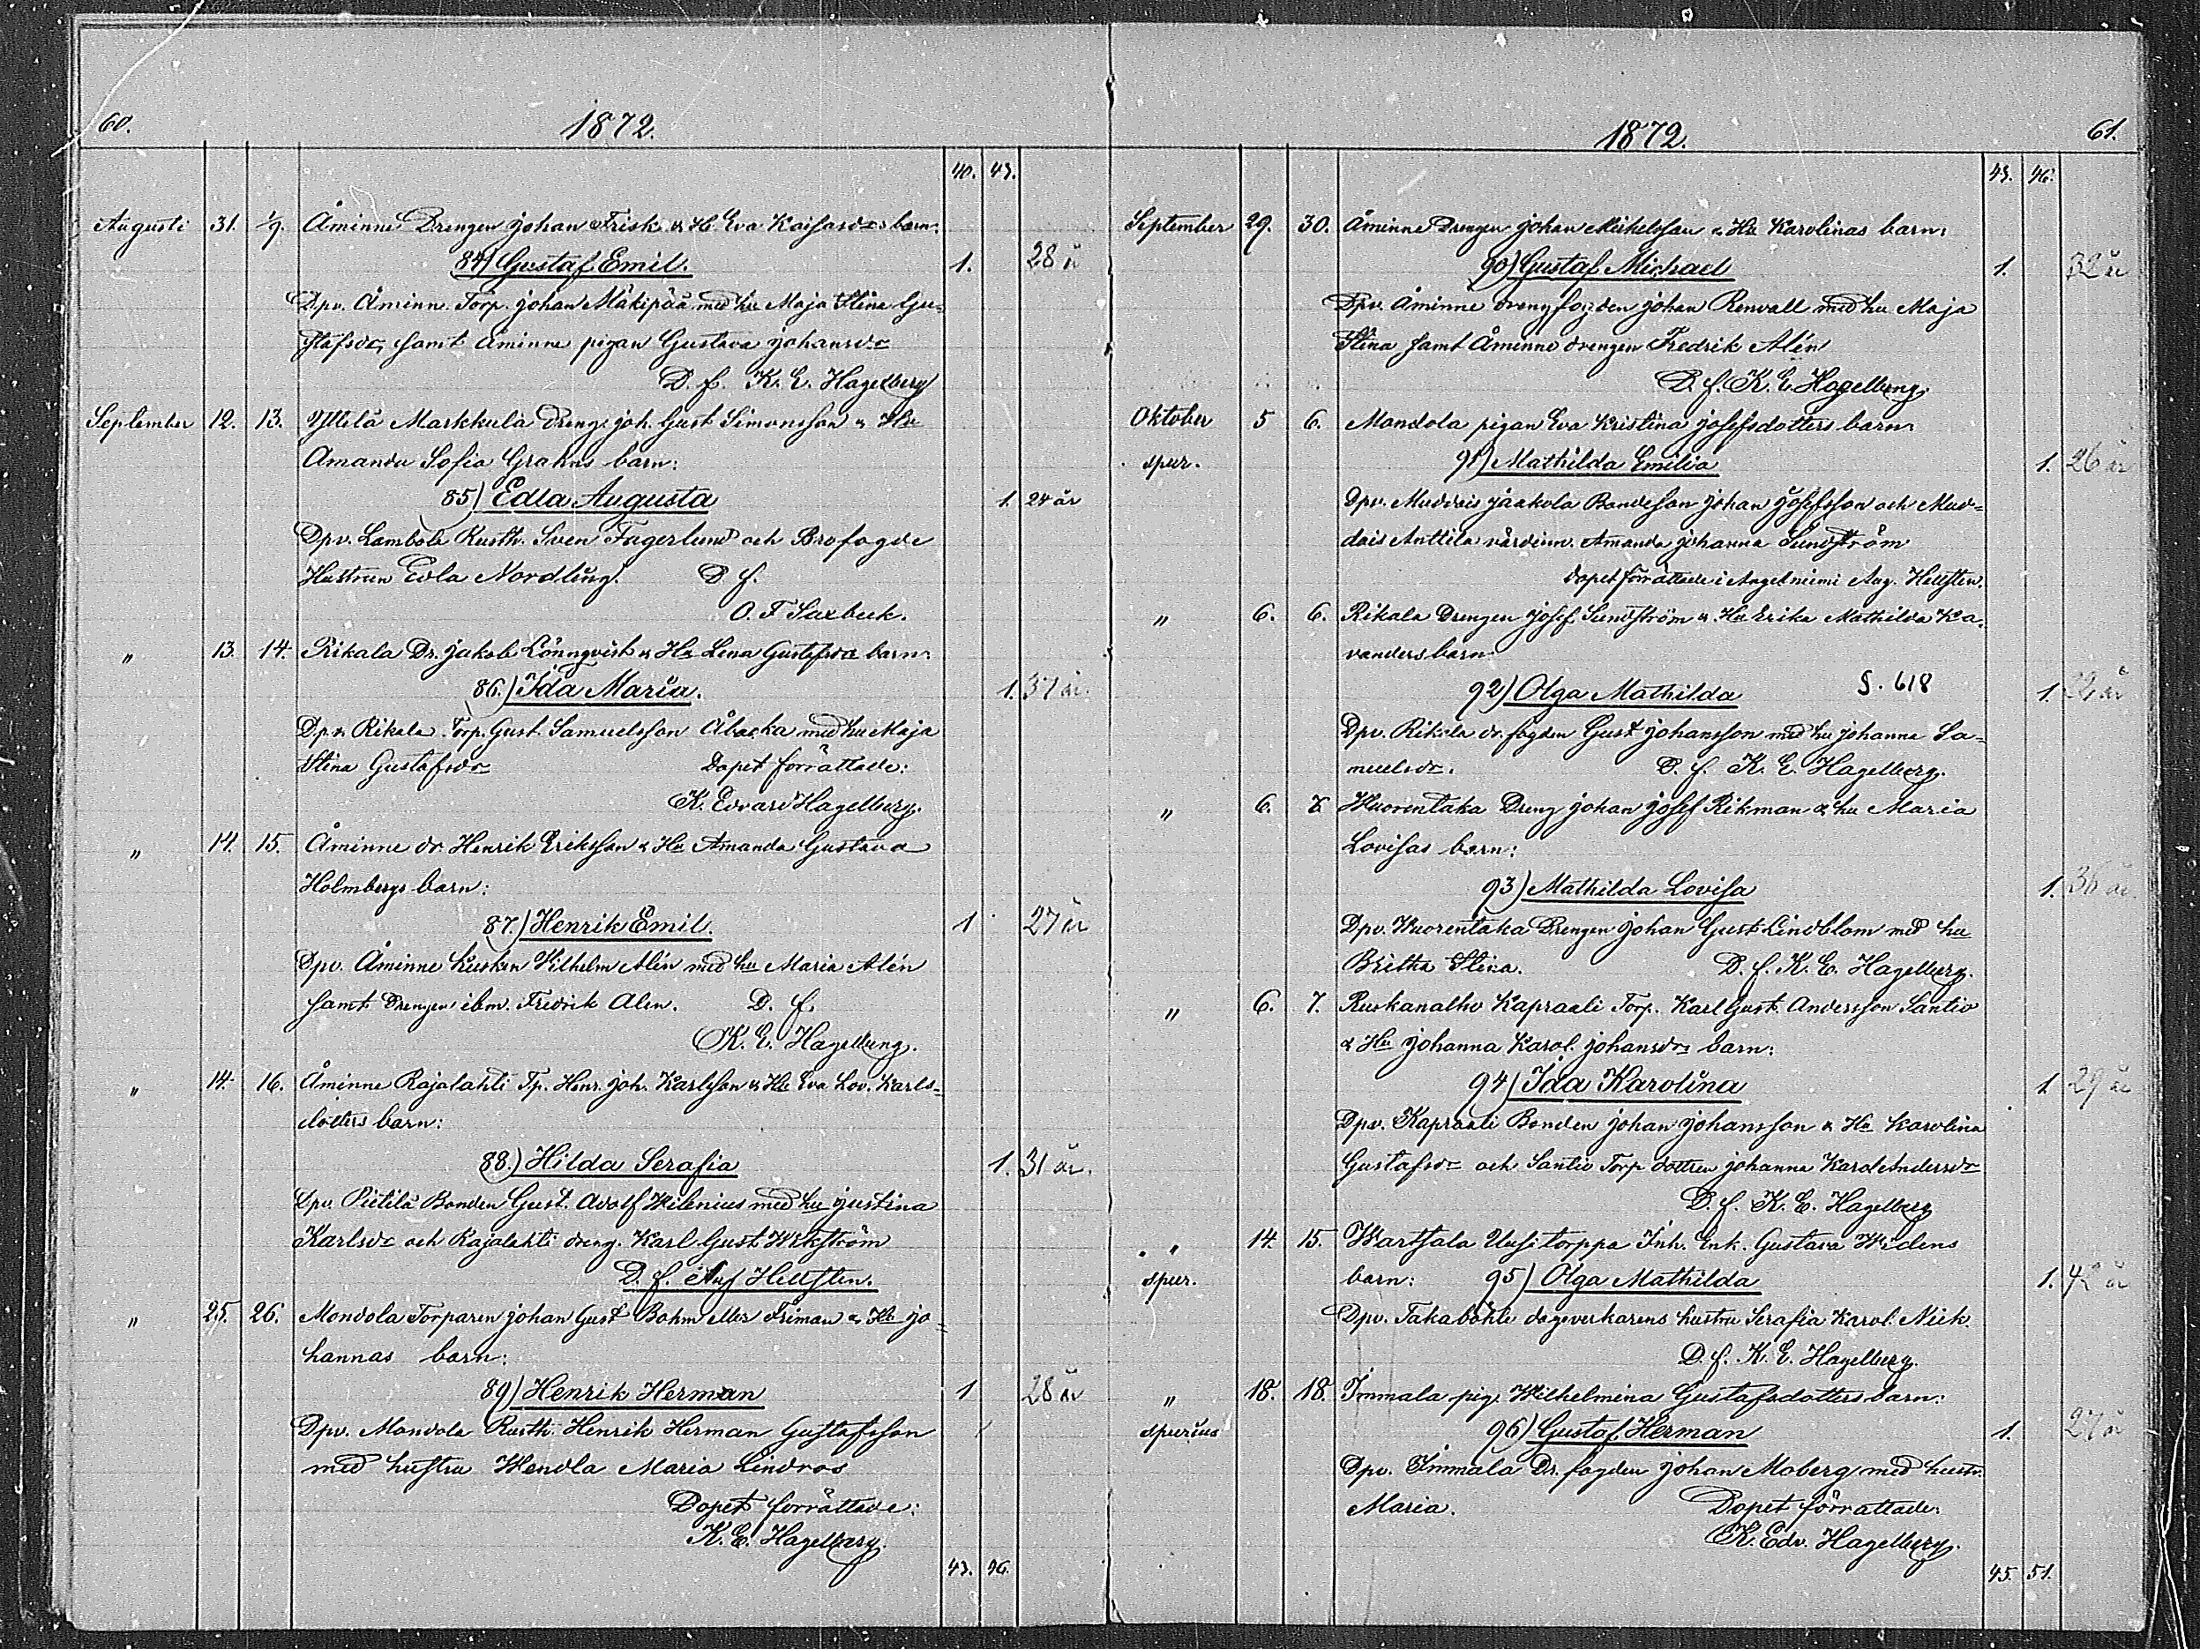 60.
1872.
40. 43.
Augusti 31. 1/9. Åminne Drengen Johan Frisk & H. Eva Kaisasdrs barn:
84) Gustaf Emil. 1. 28 år
Dpv. Åminne Torp. Johan Mäkipää med hu Maja Stina Gu-
stafsdr, samt Åminne pigan Gustava Johansdr
D. f. K. E. Hagelberg
September 12. 13. Yttelä Markkula Dreng Joh. Gust Simonsson & Hu
Amanda Sofia Grahns barn:
85) Edla Augusta 1. 24 år
Dpv. Lambola Rusth. Sven Fagerlund och Brofogde
Hustrun Edla Nordling. D f.
O. F Saxbeck.
" 13. 14. Rikala Dr. Jakob Lönnqvist & Hu Lena Gustafsdr barn:
86.) Ida Maria. 1. 37 år.
Dpv. Rikala Torp. Gust. Samuelsson Åbacka med hu Maja
Stina Gustafsdr Dopet förrättade:
K. Edvard Hagelberg.
" 14. 15. Åminne dr Henrik Eriksson & Hu Amanda Gustava
Holmbergs barn:
87.) Henrik Emil. 1 27 år
Dpv. Åminne kusken Wilhelm Alén med hu Maria Alén
samt Drengen ibm. Fredrik Alen. D. f.
K. E. Hagelberg.
" 14. 16. Åminne Rajalahti Tp. Henr. Joh. Karlsson & Hu Eva Lov. Karls-
dotters barn:
88.) Hilda Serafia 1. 31 år.
Dpv. Pietilä Bonden Gust. Adolf Wilenius med hu Justina
Karlsdr och Rajalahti dreng. Karl Gust Wikström
D. f. Auf Hellsten.
" 25. 26. Mondola Torparen Johan Gust Bohm eller Friman & Hu Jo-
hannas barn:
89) Henrik Herman 1 28 år
Dpv. Mondola Rusth. Henrik Herman Gustafsson
med hustru Wendla Maria Lindros
Dopet förrättade:
K. E. Hagelberg.
43. 46.
1872.
61.
43. 46.
September 29. 30. Åminne Drengen Johan Mickelsson & Hu Karolinas barn:
90) Gustaf Michael 1. 32 år
Dpv. Åminne drengfogden Johan Renvall med hu Maja
Stina samt Åminne drengen Fredrik Alén
D. f. K. E. Hagelberg.
Oktober 5 6. Mondola pigan Eva Kristina Josefsdotters barn:
spur. 91) Mathilda Emilia 1. 26 år
Dpv. Muddais Jaakola Bondeson Johan Josefsson och Mud-
dais Anttila värdinn. Amanda Johanna Sundström
dopet förrättade i Angelniemi Aug. Hellsten.
" 6. 6. Rikala Drengen Josef Sundström & Hu Erika Mathilda Ka-
vanders barn
92) Olga Mathilda S. 618 1. år
Dpv. Rikala dr. fogden Gust Johansson med hu Johanna Sa-
muelsdr. D. f. K. E. Hagelberg.
" 6. 7. Wuorentaka Dreng Johan Josef Rikman & hu Maria
Lovisas barn:
93) Mathilda Lovisa 1. 36 år
Dpv. Wuorentaka Drengen Johan Gust Lindblom med hu
Britha Stina. D. f. K. E. Hagelberg.
" 6. 7. Ruskanalho Kapraali Torp. Karl Gust. Andersson Santio
& Hu Johanna Karol. Johansdrs barn:
94) Ida Karolina 1. 29 år
Dpv. Kapraali Bonden Johan Johansson & Hu Karolina
Gustafsdr och Santio Torp dottren Johanna Karol Andersdr
D. f. K. E. Hagelberg
" 14. 15. Wartsala Uusitorppa Inh. Enk. Gustava Widens
spur. barn: 95) Olga Mathilda 1. 42 år
Dpv. Takaböhle dagsverkarens hustru Serafia Karol. Nick.
D. f. K. E. Hagelberg.
" 18. 18. Immala pig. Wilhelmina Gustafsdotters barn:
spurius 96) Gustaf Herman 1. 27 år
Dpv. Immala Dr. fogden Johan Moberg med hustr.
Maria. Dopet förrättade.
K. Edv. Hagelberg.
45. 51.